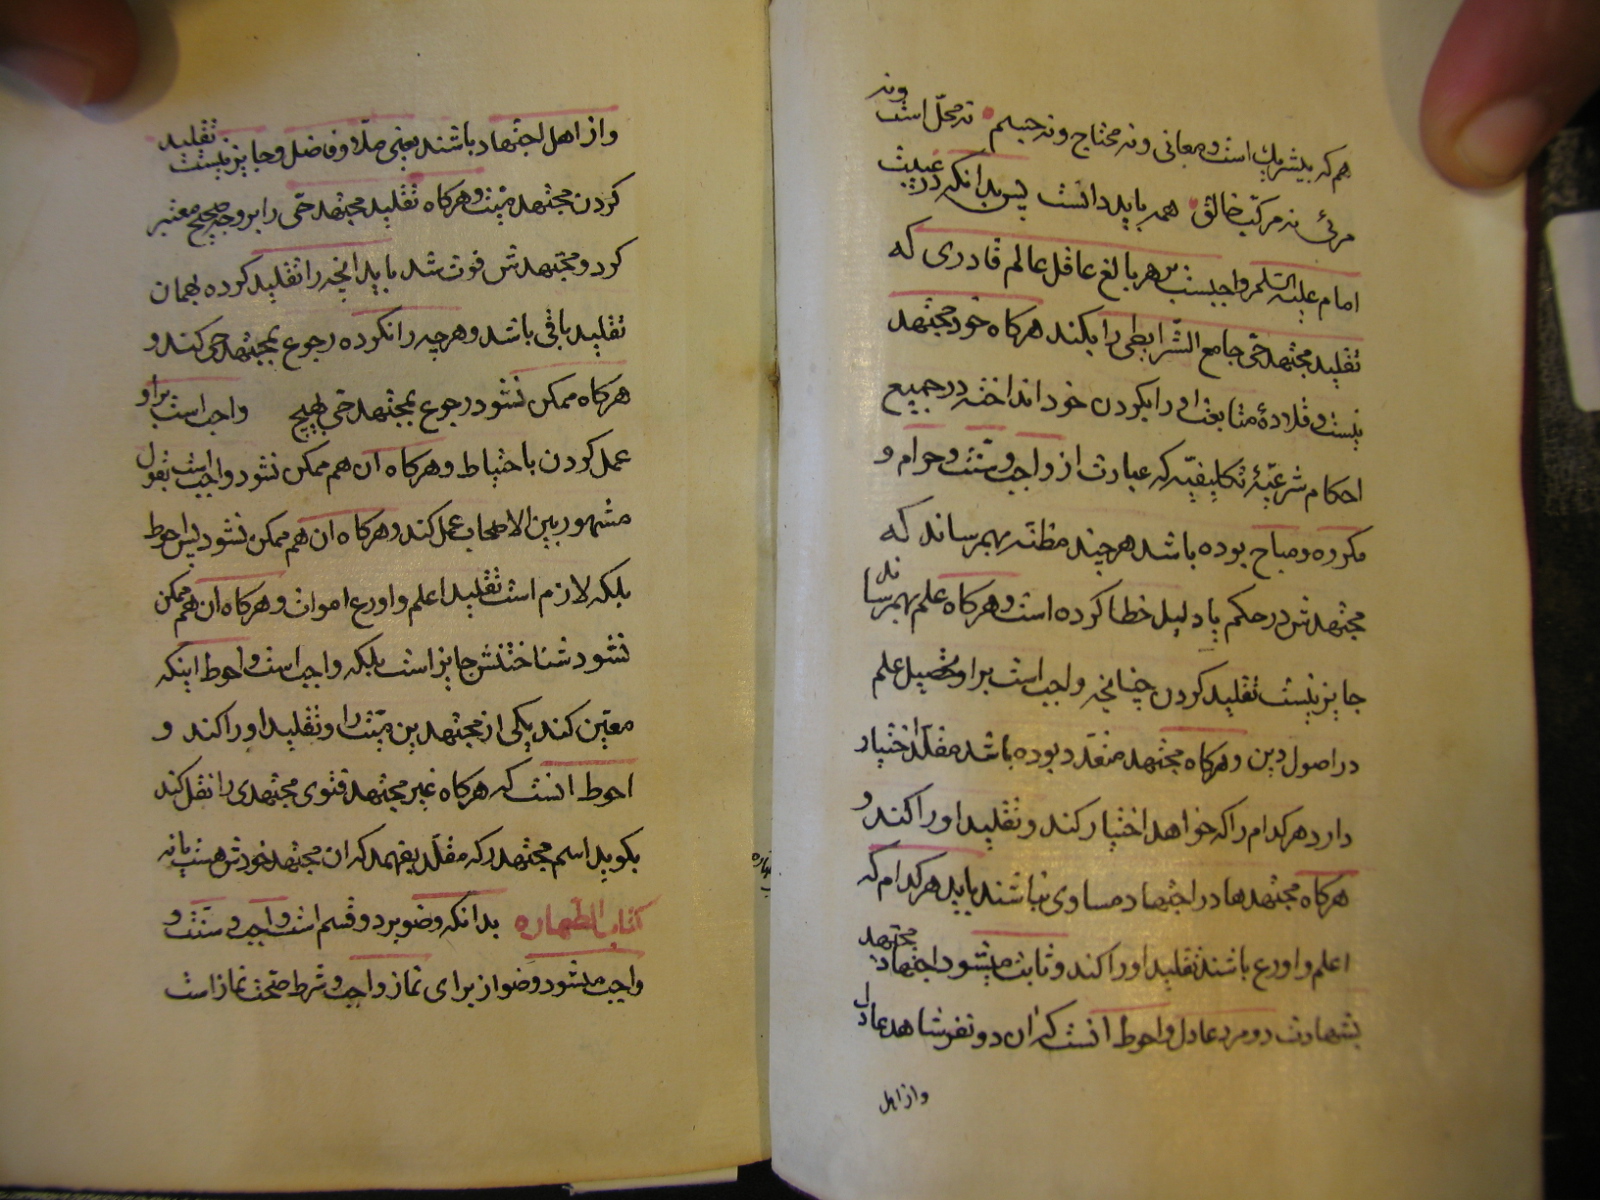 هم که بیشریک است و معانی و نه محتاج و نه جسم نه محل است و نه
مرئی نه مرکب خالق همه باید دانست پس بدانکه در غیبت
امام علیه السلم واجبست بر هر بالغ عاقل عالم قادری که
تقلید مجتهد حی جامع الشرایطی را بکند هرکاه خود مجتهد
نیست و قلادهٔ متابعت او را بکردن خود انداخته در جمیع
احکام شرعیهٔ تکلیفیه که عبارت از واجب و سنت و حرام و
مکروه و مباح بوده باشد هرچند مظنه بهمرساند که
مجتهدش در حکم یا دلیل خطا کرده است و هرکاه علم بهمرساند
جایز نیست تقلید کردن چنانچه واجب است بر او تحصیل علم
در اصول دین و هرکاه مجتهد متعدد بوده باشد مقلد اختیار
دارد هرکدام را که خواهد اختیار کند و تقلید او را کند و
هرکاه مجتهدها در اجتهاد مساوی نباشند باید هرکدام که
اعلم و اورع باشند تقلید او را کند و ثابت میشود اجتهاد مجتهد
بشهادت دو مرد عادل و احوط انست که ان دو نفر شاهد عادل
و از اهل
و از اهل اجتهاد باشند یعنی ملا و فاضل و جایز نیست تقلید
کردن مجتهد میت و هرکاه تقلید مجتهد حی را بر وجه صحیح معتبر
کرد و مجتهدش فوت شد باید انچه را تقلید کرده بهمان
تقلید باقی باشد و هرچه را نکرده رجوع بمجتهد حی کند و
هرکاه ممکن نشود رجوع بمجتهد حی بهیچ واجب است بر او
عمل کردن باحتیاط و هرکاه ان هم ممکن نشود واجب است بقول
مشهور بین الاصحاب عمل کند و هرکاه ان هم ممکن نشود پس احوط
بلکه لازم است تقلید اعلم و اورع اموات و هرکاه ان هم ممکن
نشود شناختنش جایز است بلکه واجب است و احوط اینکه
معین کند یکی از مجتهدین میت را و تقلید او را کند و
احوط انست که هرکاه غیر مجتهد فتوی مجتهدی را نقل کند
بکوید اسم مجتهد را که مقلد بفهمد که ان مجتهد خودش هست یا نه
کتاب الطهاره بدانکه وضو بر دو قسم است واجب و سنت و
واجب میشود وضو از برای نماز واجب و شرط صحت نماز است